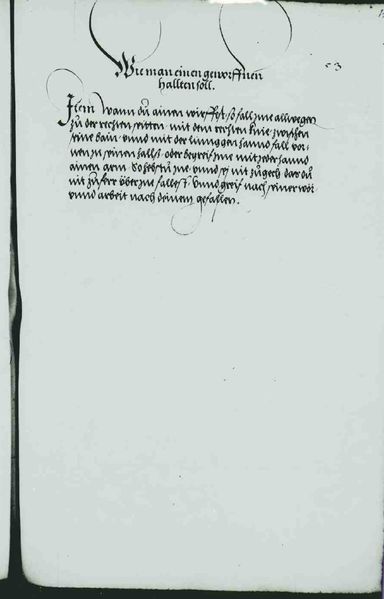 53
Wie man einen geworffnen
hallten soll.
Item wann du ainen wirfst so fall Ime allwegen
zu der rechten seitten mit dem rechten knie zwischen
seine bain vnnd mit der linnggen hannd fall vor-
nen in seinen hallß oder begreif Ime mit jeder hannd
ainen arm vnnd sy nit zu gech das du
nit zu ferr über Ine fallest Vnnd greif nach seiner wör
vnnd arbeit nach deinem gefallen.